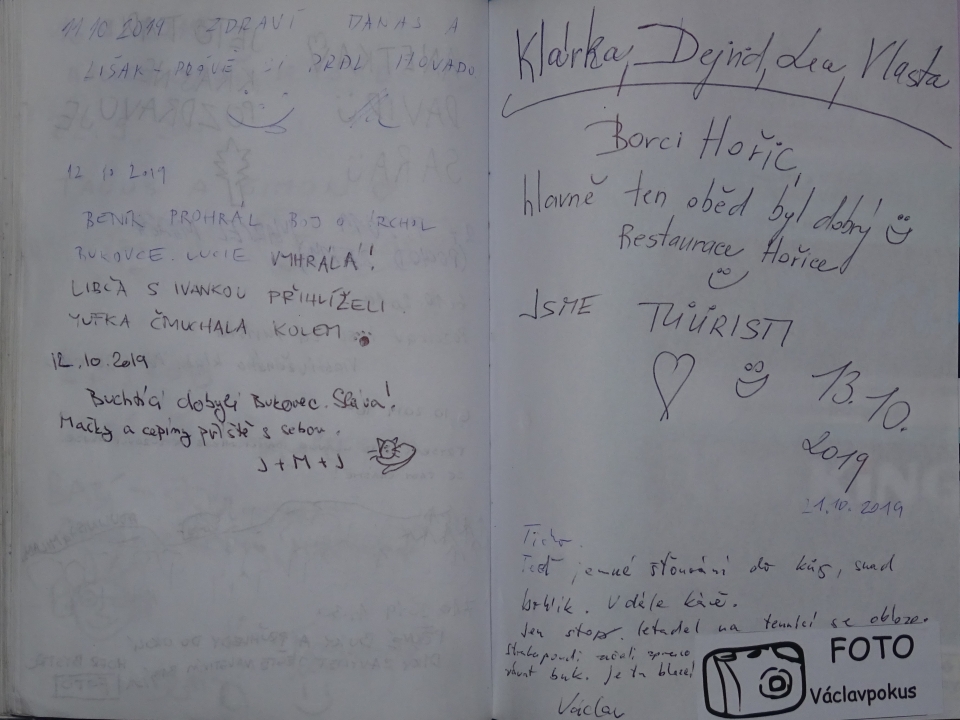 11.10.2019 ZDRAVÍ DANAS A
LIŠÁK
12 10 2019
BENÍK PROHRÁL BOJ O VRCHOL
BUKOVCE. LUCIE VYHRÁLA!
LIBČA S IVANKOU PŘIHLÍŽELI.
ČMUCHALA KOLEM
12.10.2019
Buchtíci dobyli Bukovec. Sláva!
Mačky a cepíny příště s sebou.
J + M + J
Klárka, Dejvid, Lea, Vlasta
Borci Hořic,
hlavně ten oběd byl dobrý
Restaurace Hořice
JSME TŮŮRISTI
13.10.
2019
21.10.2019
Ticho.
Teď jemné šťourání do kůry, snad
brhlík. V dále káně.
Jen stopy letadel na tenulcí se obloze.
Strakapoudi začali zpracovávat buk. je tu blaze!
Václav
FOTO
Václavpokus